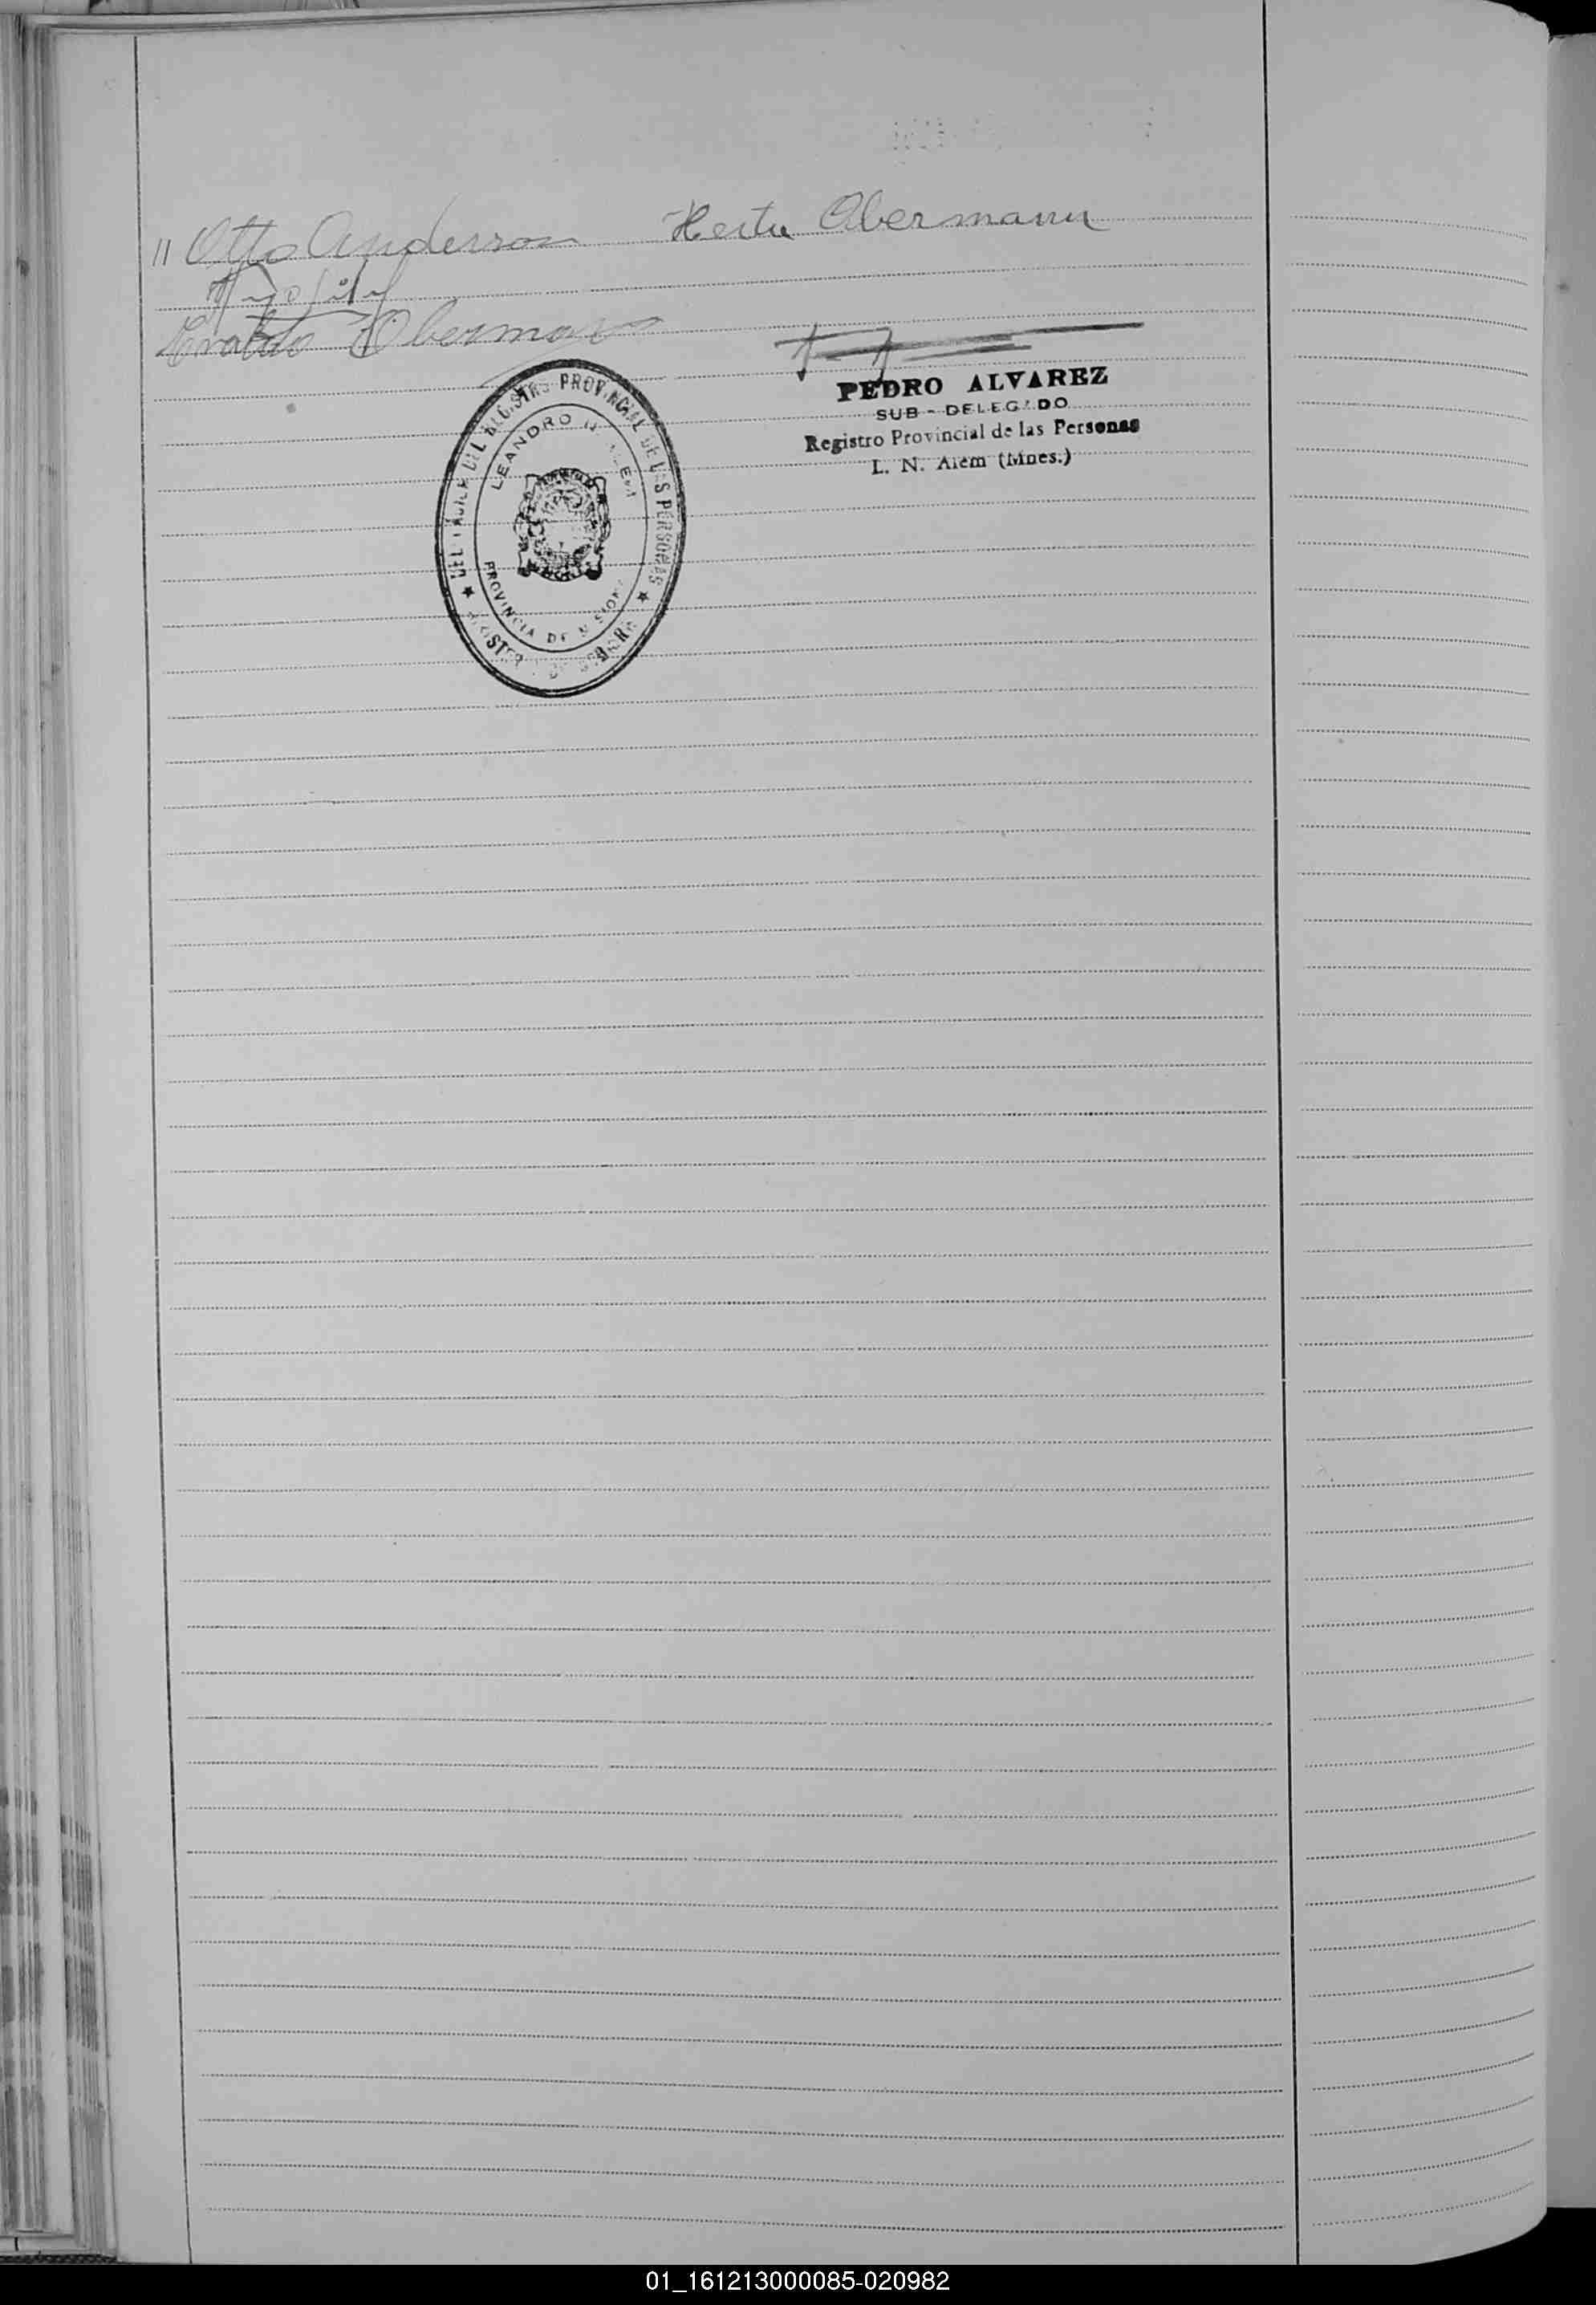 〃 Otto Anderson Herta Obermann
Obermann
PEDRO ALVAREZ
SUB-DELEGADO
Registro Provincial de las Personas
L. N. Alem (Mnes.)
DEL REGISTRO PROVINCIAL DE LAS PERSONAS
LEANDRO N. ALEM
PROVINCIA DE MISIONES
01_161213000085-020982